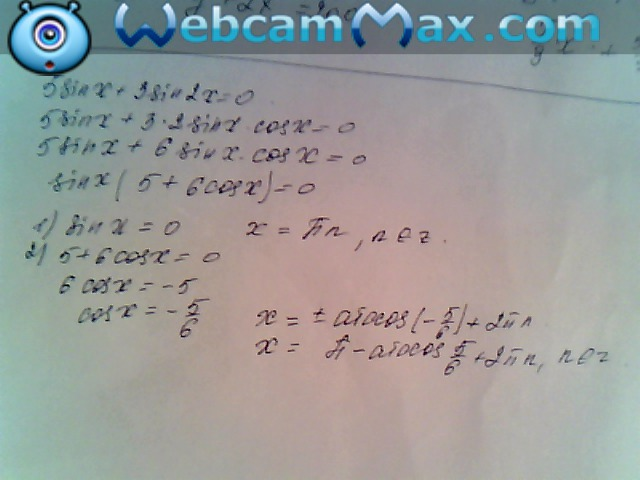 WebcamMax.com
5sinx + 3sin2x = 0
5sinx + 3·2sinx·cosx = 0
5sinx + 6sinx·cosx = 0
sinx(5 + 6cosx) = 0
1) sinx = 0 x = πn, n∈z.
2) 5 + 6cosx = 0
6cosx = -5
cosx = -5/6 x = ± arccos(-5/6) + 2πn
x = π - arccos 5/6 + 2πn, n∈z